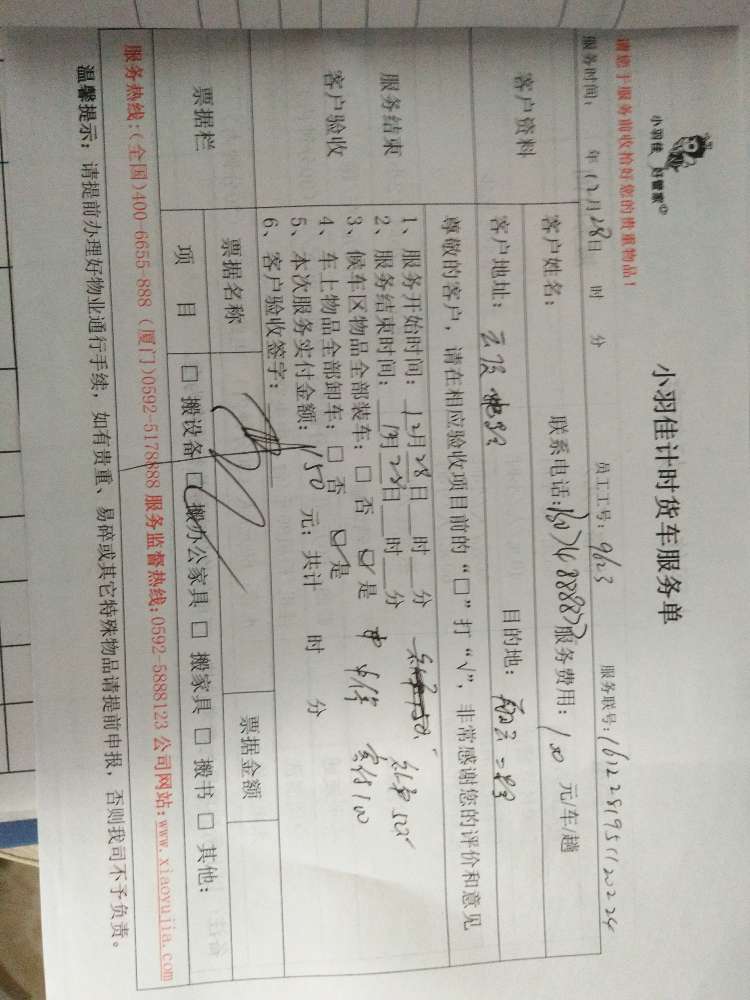 小羽佳 好管家
小羽佳计时货车服务单
请您于服务前收拾好您的贵重物品!
服务时间: 年12月28日 时 分 员工工号:9623 服务联号:
客户资料
客户姓名: 联系电话: 服务费用: 元/车/趟
客户地址: 目的地:
服务结束
客户验收
尊敬的客户,请在相应验收项目前的“□”打“√”,非常感谢您的评价和意见
1、服务开始时间:12月28日 时 分
2、服务结束时间: 月28日 时 分
3、候车区物品全部装车:□ 否 ☑ 是
4、车上物品全部卸车:□ 否 ☑ 是
5、本次服务实付金额:150 元;共计 时 分
6、客户验收签字:
实付100
票据栏
票据名称 票据金额
项 目 □ 搬设备 □ 搬办公家具 □ 搬家具 □ 搬书 □ 其他:
服务热线:(全国)400-6655-888 (厦门)0592-5178888 服务监督热线:0592-5888123 公司网站:www.xiaoyujia.com
温馨提示:请提前办理好物业通行手续,如有贵重、易碎或其它特殊物品请提前申报,否则我司不予负责。